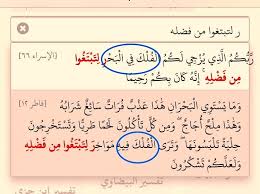 ر لتبتغوا من فضله
رَّبُّكُمُ الَّذِي يُزْجِي لَكُمُ الْفُلْكَ فِي الْبَحْرِ لِتَبْتَغُوا [الإسراء ٦٦]
مِن فَضْلِهِ إِنَّهُ كَانَ بِكُمْ رَحِيمًا
وَمَا يَسْتَوِي الْبَحْرَانِ هَذَا عَذْبٌ فُرَاتٌ سَائِغٌ شَرَابُهُ [فاطر ١٢]
وَهَذَا مِلْحٌ أُجَاجٌ وَمِن كُلٍّ تَأْكُلُونَ لَحْمًا طَرِيًّا وَتَسْتَخْرِجُونَ
حِلْيَةً تَلْبَسُونَهَا وَتَرَى الْفُلْكَ فِيهِ مَوَاخِرَ لِتَبْتَغُوا مِن فَضْلِهِ
وَلَعَلَّكُمْ تَشْكُرُونَ
تفسير البيضاوي